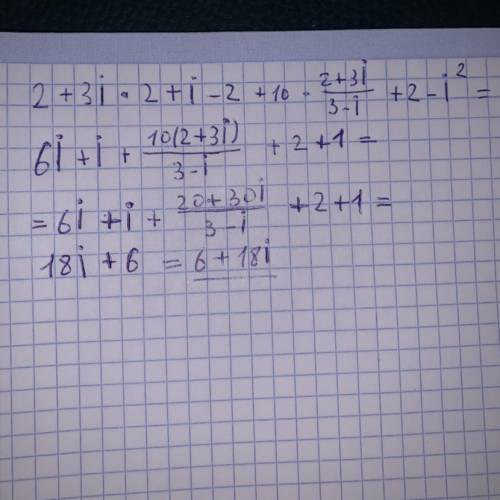 2 + 3i · 2 + i - 2 + 10 · \frac{2+3i}{3-i} + 2 - i^2 =
6i + i + \frac{10(2+3i)}{3-i} + 2 + 1 =
= 6i + i + \frac{20+30i}{3-i} + 2 + 1 =
18i + 6 = 6 + 18i